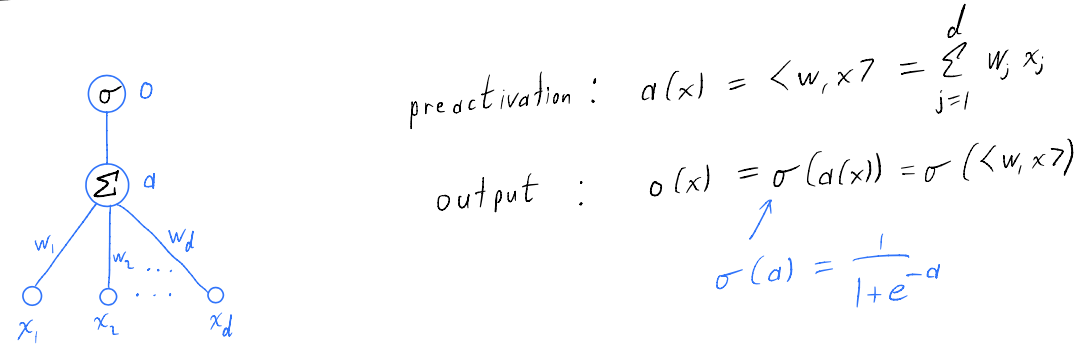 σ o
Σ a
w₁ w₂ ... w_d
...
x₁ x₂ x_d
preactivation : a(x) = <w, x> = Σ_{j=1}^{d} w_j x_j
output : o(x) = σ(a(x)) = σ(<w, x>)
σ(a) = 1/(1+e^{-a})